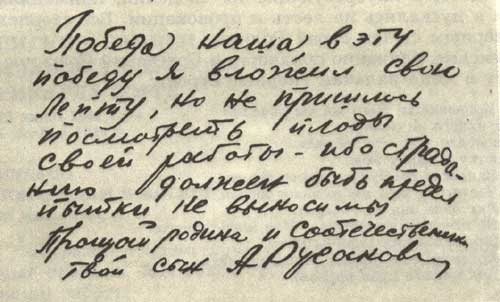 Победа наша, в эту
победу я вложил свою
лепту, но не пришлось
посмотреть плоды
своей работы - ибо страда-
нию должен быть предел
пытки не выносимы
Прощай родина и соотечественники
твой сын А Русанов